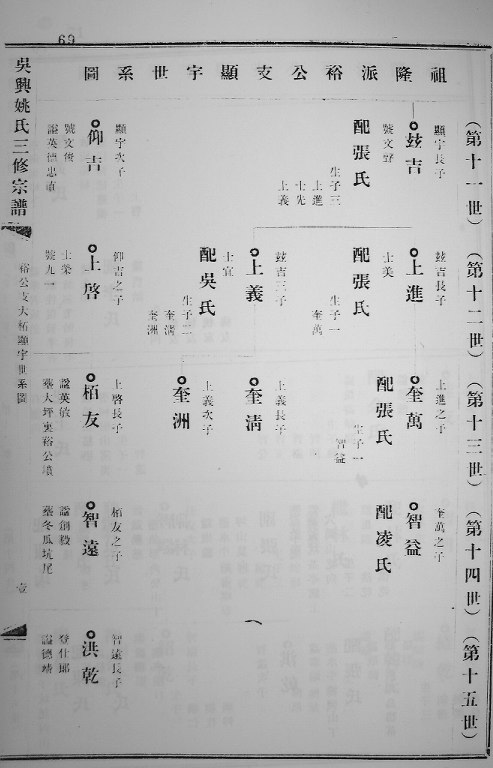 69
祖隆派裕公支顯宇世系圖
吳興姚氏三修宗譜
裕公支大柘顯宇世系圖
壹
(第十一世)
顯宇長子
玆吉
號文野
配張氏
生子三
上進
士先
上義
顯宇次子
仰吉
號文俊
謚英德忠直
(第十二世)
玆吉長子
上進
士美
配張氏
生子一
奎萬
玆吉三子
上義
士宜
配吳氏
生子二
奎淸
奎洲
仰吉之子
上啓
士榮
號九一
(第十三世)
上進之子
奎萬
配張氏
生子一
智益
上義長子
奎淸
上義次子
奎洲
上啓長子
栢友
謚英敏
墓大坪裏裕公墳
(第十四世)
奎萬之子
智益
配凌氏
栢友之子
智遠
謚剛毅
墓冬瓜坑尾
(第十五世)
智遠長子
洪乾
登仕郎
謚德靖